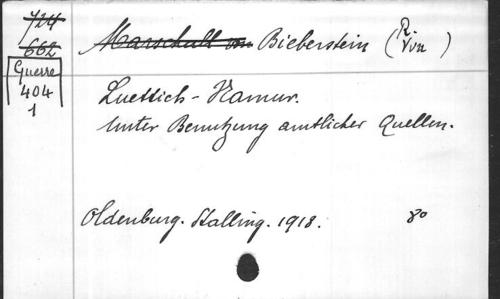 724
662
Guerre
404
1
Marschall von Bieberstein (R. von)
Luettich - Namur.
Unter Benutzung amtlicher Quellen.
Oldenburg. Stalling. 1918. 8o